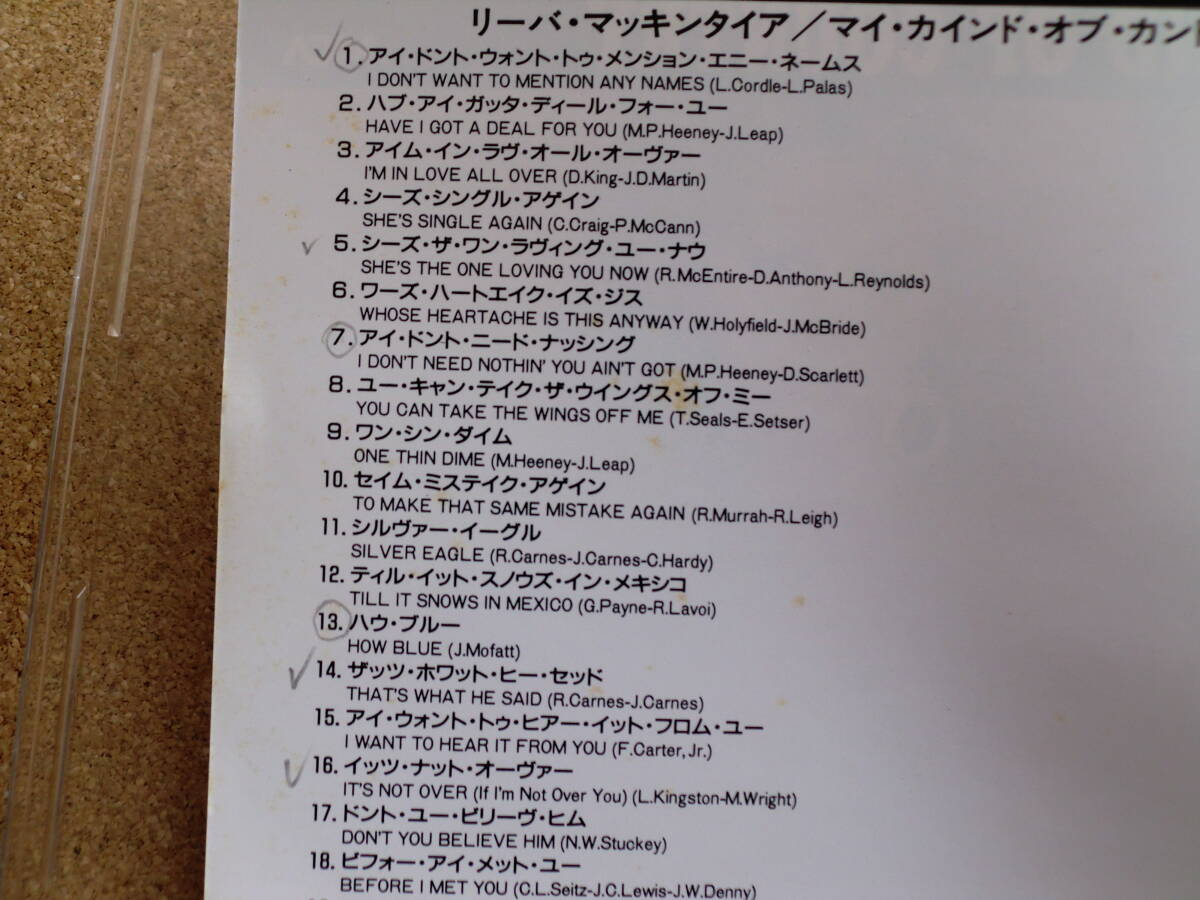 リーバ・マッキンタイア/マイ・カインド・オブ・カント
1. アイ・ドント・ウォント・トゥ・メンション・エニー・ネームス
I DON'T WANT TO MENTION ANY NAMES (L.Cordle-L.Palas)
2. ハブ・アイ・ガッタ・ディール・フォー・ユー
HAVE I GOT A DEAL FOR YOU (M.P.Heeney-J.Leap)
3. アイム・イン・ラヴ・オール・オーヴァー
I'M IN LOVE ALL OVER (D.King-J.D.Martin)
4. シーズ・シングル・アゲイン
SHE'S SINGLE AGAIN (C.Craig-P.McCann)
5. シーズ・ザ・ワン・ラヴィング・ユー・ナウ
SHE'S THE ONE LOVING YOU NOW (R.McEntire-D.Anthony-L.Reynolds)
6. ワーズ・ハートエイク・イズ・ジス
WHOSE HEARTACHE IS THIS ANYWAY (W.Holyfield-J.McBride)
7. アイ・ドント・ニード・ナッシング
I DON'T NEED NOTHIN' YOU AIN'T GOT (M.P.Heeney-D.Scarlett)
8. ユー・キャン・テイク・ザ・ウイングス・オフ・ミー
YOU CAN TAKE THE WINGS OFF ME (T.Seals-E.Setser)
9. ワン・シン・ダイム
ONE THIN DIME (M.Heeney-J.Leap)
10. セイム・ミステイク・アゲイン
TO MAKE THAT SAME MISTAKE AGAIN (R.Murrah-R.Leigh)
11. シルヴァー・イーグル
SILVER EAGLE (R.Carnes-J.Carnes-C.Hardy)
12. ティル・イット・スノウズ・イン・メキシコ
TILL IT SNOWS IN MEXICO (G.Payne-R.Lavoi)
13. ハウ・ブルー
HOW BLUE (J.Mofatt)
14. ザッツ・ホワット・ヒー・セッド
THAT'S WHAT HE SAID (R.Carnes-J.Carnes)
15. アイ・ウォント・トゥ・ヒアー・イット・フロム・ユー
I WANT TO HEAR IT FROM YOU (F.Carter,Jr.)
16. イッツ・ナット・オーヴァー
IT'S NOT OVER (If I'm Not Over You) (L.Kingston-M.Wright)
17. ドント・ユー・ビリーヴ・ヒム
DON'T YOU BELIEVE HIM (N.W.Stuckey)
18. ビフォー・アイ・メット・ユー
BEFORE I MET YOU (C.L.Seitz-J.C.Lewis-J.W.Denny)